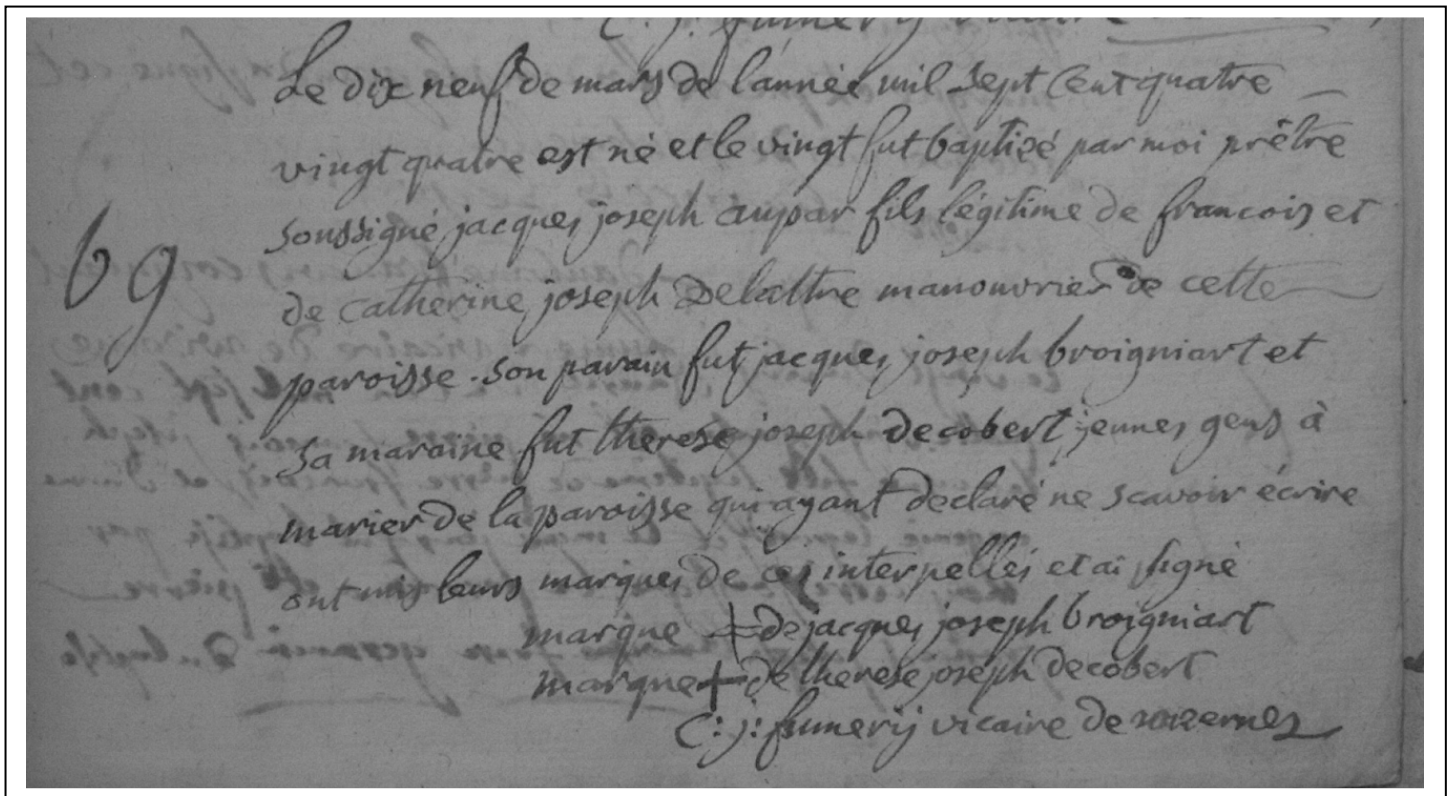 C: j: fumerij vicaire
Le dix neuf de mars de l'année mil sept cent quatre
vingt quatre est né et le vingt fut baptizé par moi prêtre
soussigné jacques joseph aupar fils légitime de francois et
69
de catherine joseph Delattre manouvrier de cette
paroisse. son parain fut jacques joseph broigniart et
sa maraine fut therese joseph decobert jeunes gens à
marier de la paroisse qui ayant declaré ne scavoir écrire
ont mis leurs marques de ces interpellés et ai signé
marque de jacques joseph broigniart
marque de therese joseph decobert
C: j: fumerij vicaire de